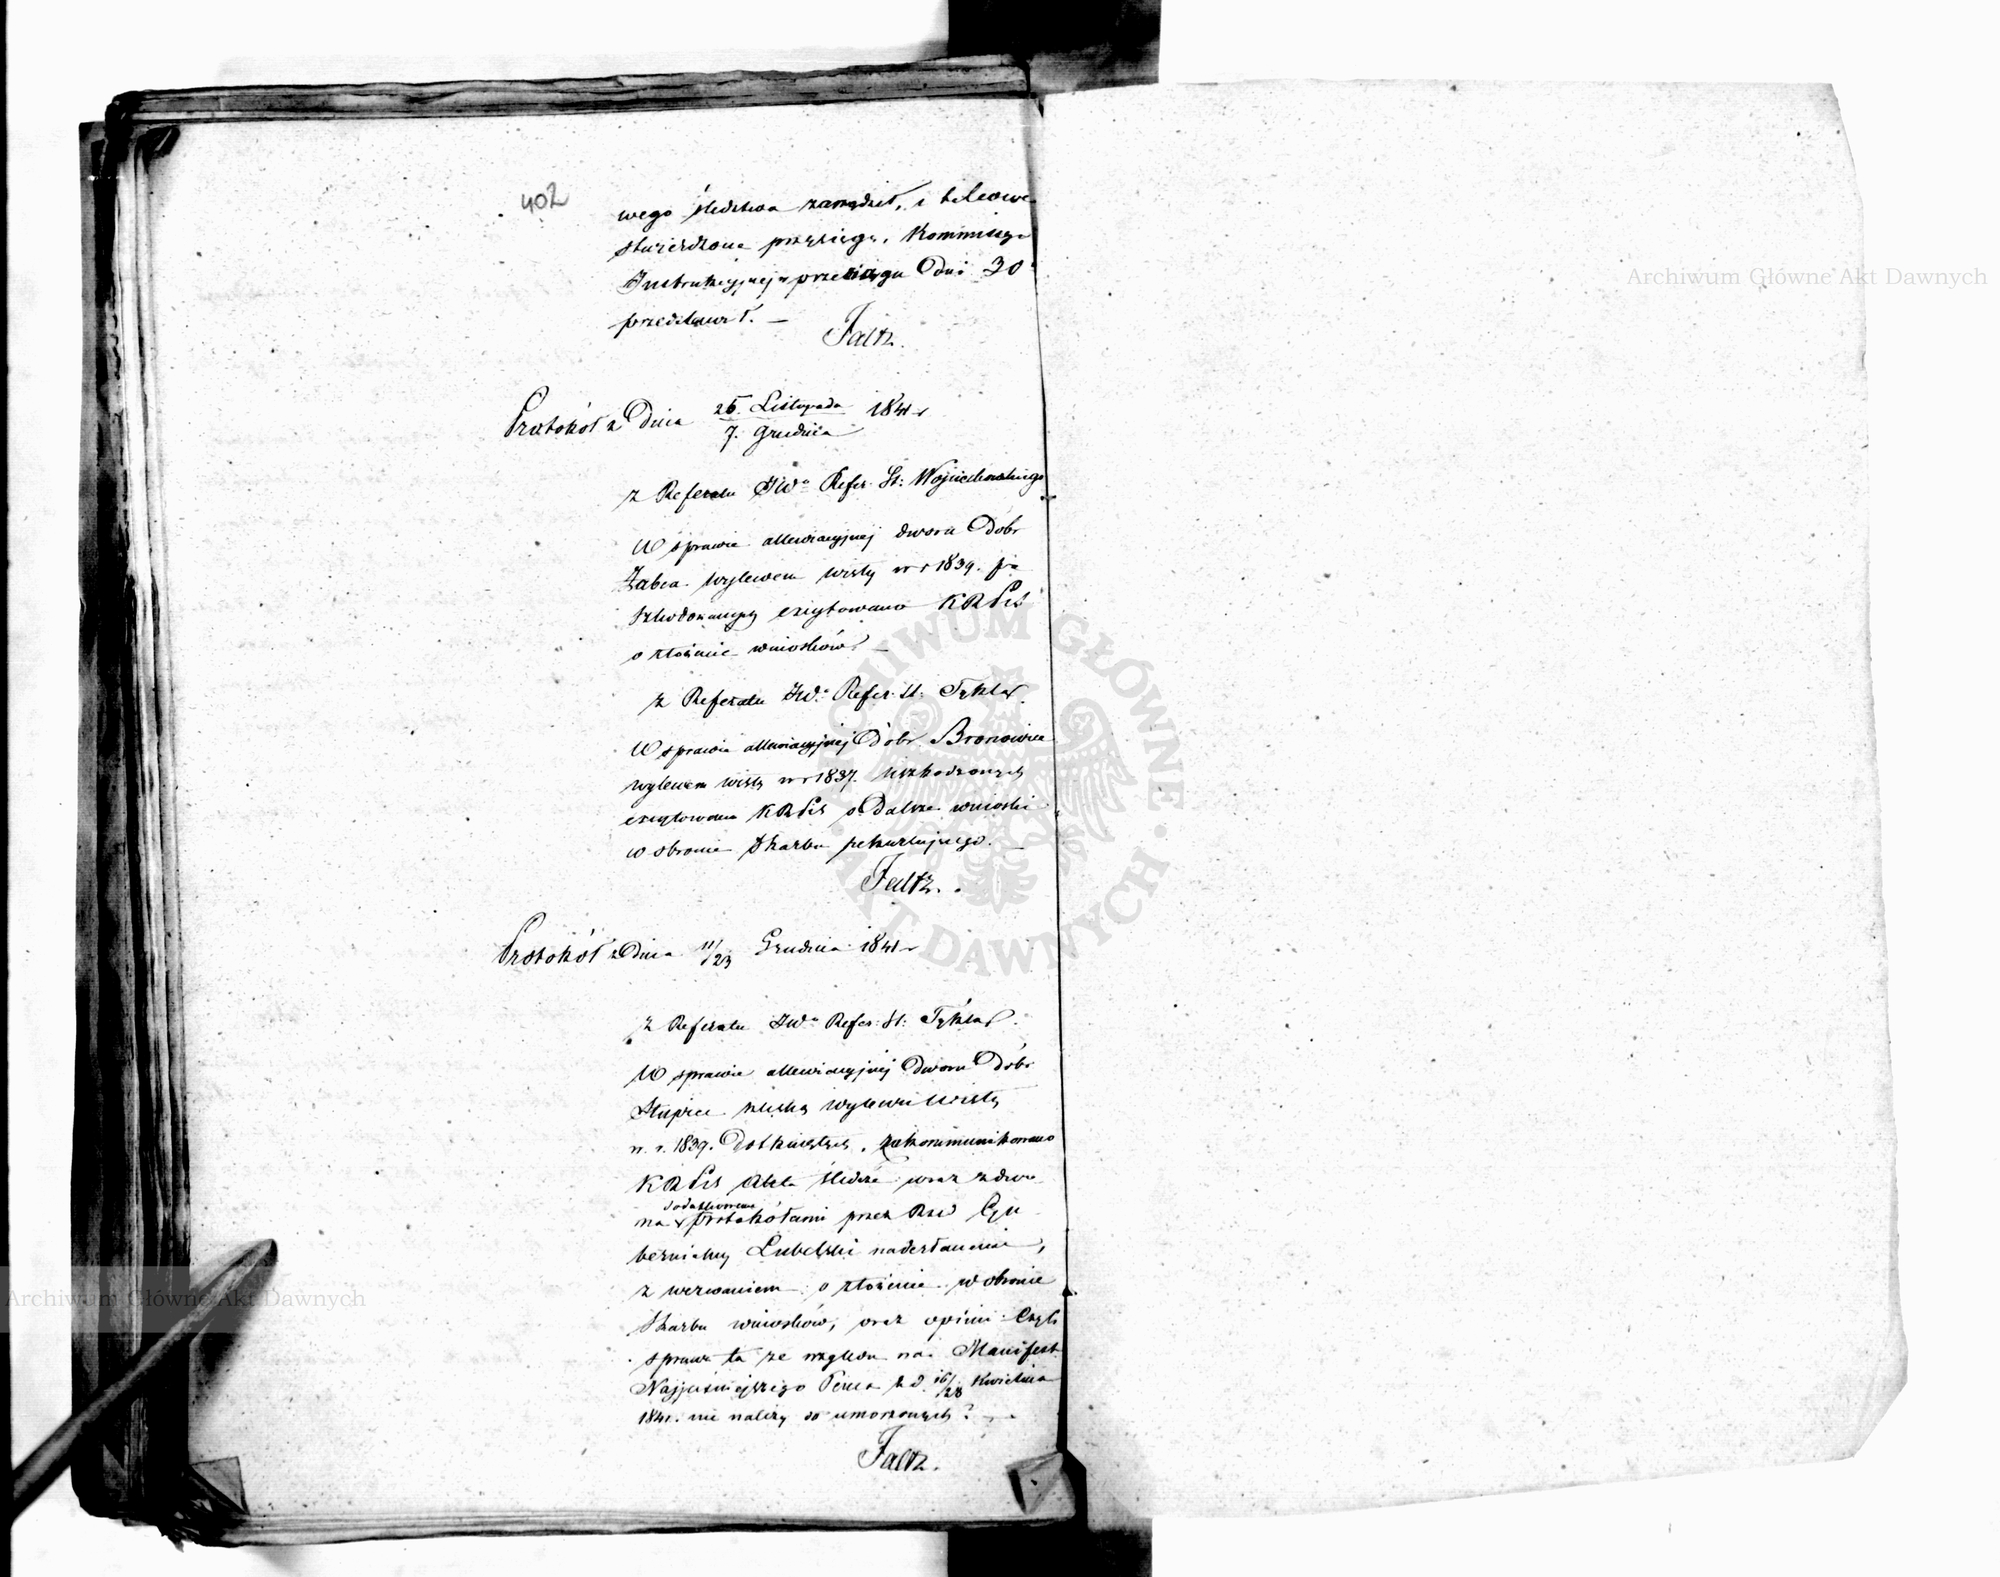 402
wego śledztwa zarządził, i takowe
stwierdzone przysięgą, Kommissyi
Instrukcyjnej w przeciągu Dni 30
przedstawił. —
Faltz.
Protokół z Dnia 25. Listopada 1841 r
7. Grudnia
z Referatu JWo Refer. St: Wojciechowskiego
W sprawie allewiacyjnej dworu Dóbr
Żabca wylewem wisły w r 1839. po
szkodowanych excytowano KRPiS
o złożenie wniosków. —
z Referatu JWo Refer. St:
W sprawie allewiacyjnej Dóbr Bronowice
wylewem wisły w r 1837. uszkodzonych
excytowano KRPiS o Dalsze wnioski
w obronie Skarbu —
Faltz.
Protokół z Dnia 11/23 Grudnia 1841 r
z Referatu JWo Refer: St:
W sprawie allewiacyjnej Dworu Dóbr
klęską wylewu Wisły
w r. 1839. Dotkniętych, zakommunikowano
KRPiS Akta śledcze wraz z dwo
dodatkowemi
ma protokółami przez Rząd Gu
bernialny Lubelski nadesłanemi,
z wezwaniem o złożenie w obronie
Skarbu wniosków, oraz opinii czyli
sprawa ta ze względu na Manifest
Najjaśniejszego Pana z d. 16/28 Kwietnia
1841. nie należy do umorzonych? —
Faltz.
Archiwum Główne Akt Dawnych
Archiwum Główne Akt Dawnych
ARCHIWUM GŁÓWNE AKT DAWNYCH